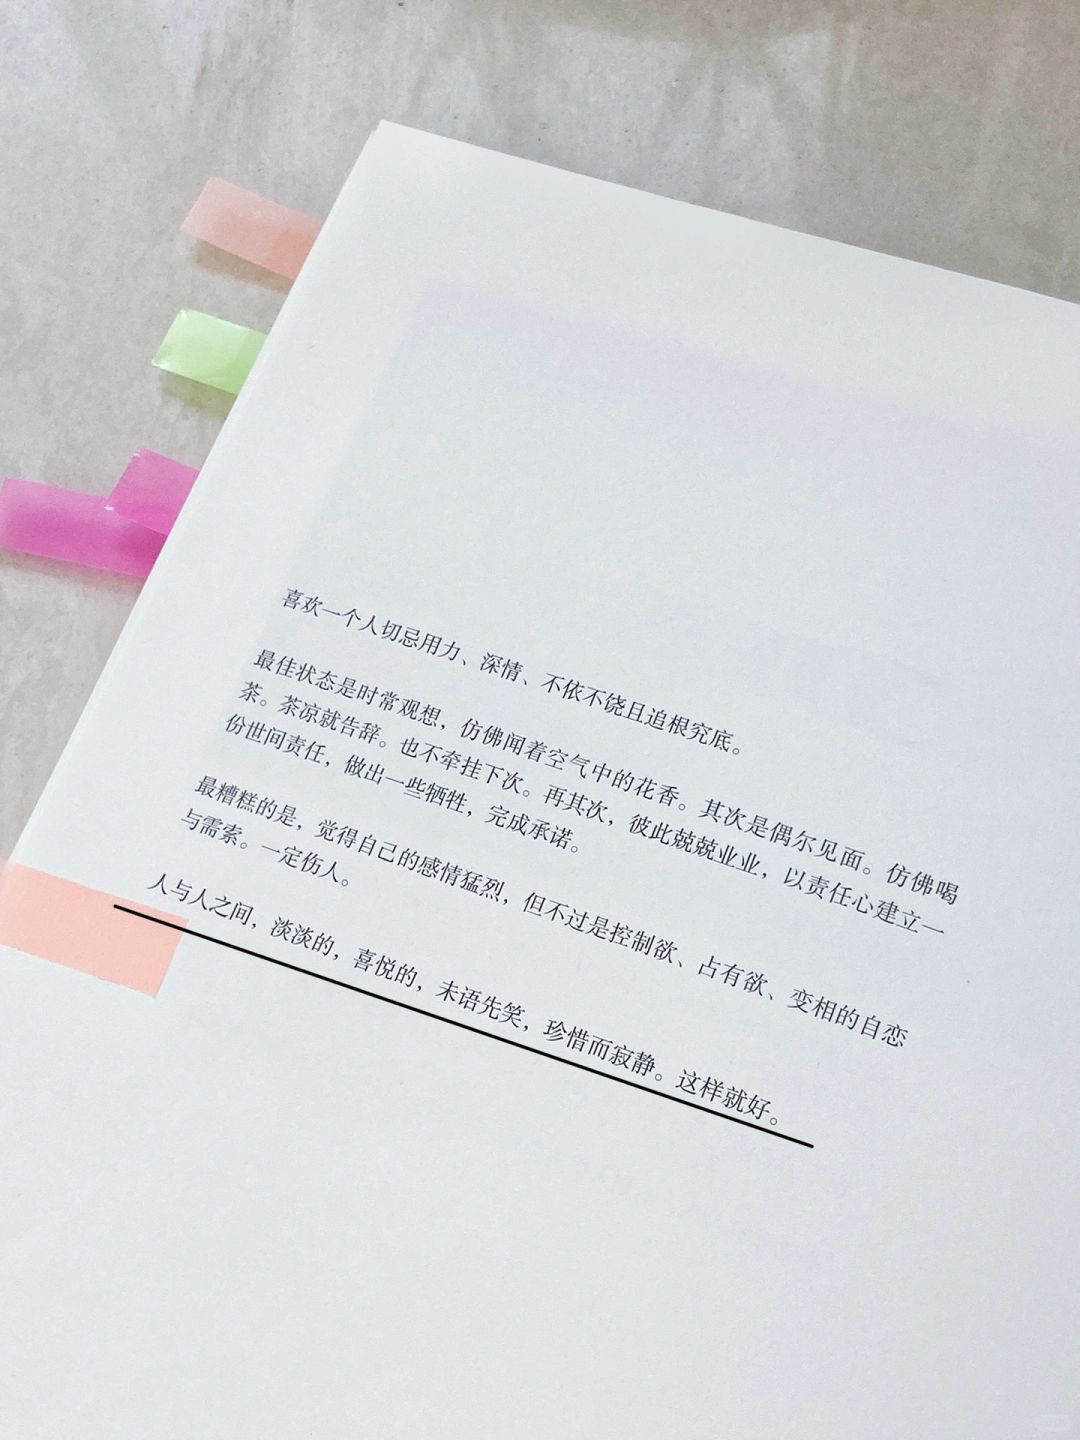 喜欢一个人切忌用力、深情、不依不饶且追根究底。
最佳状态是时常观想，仿佛闻着空气中的花香。其次是偶尔见面。仿佛喝
茶。茶凉就告辞。也不牵挂下次。再其次，彼此兢兢业业，以责任心建立一
份世间责任，做出一些牺牲，完成承诺。
最糟糕的是，觉得自己的感情猛烈，但不过是控制欲、占有欲、变相的自恋
与需索。一定伤人。
人与人之间，淡淡的，喜悦的，未语先笑，珍惜而寂静。这样就好。